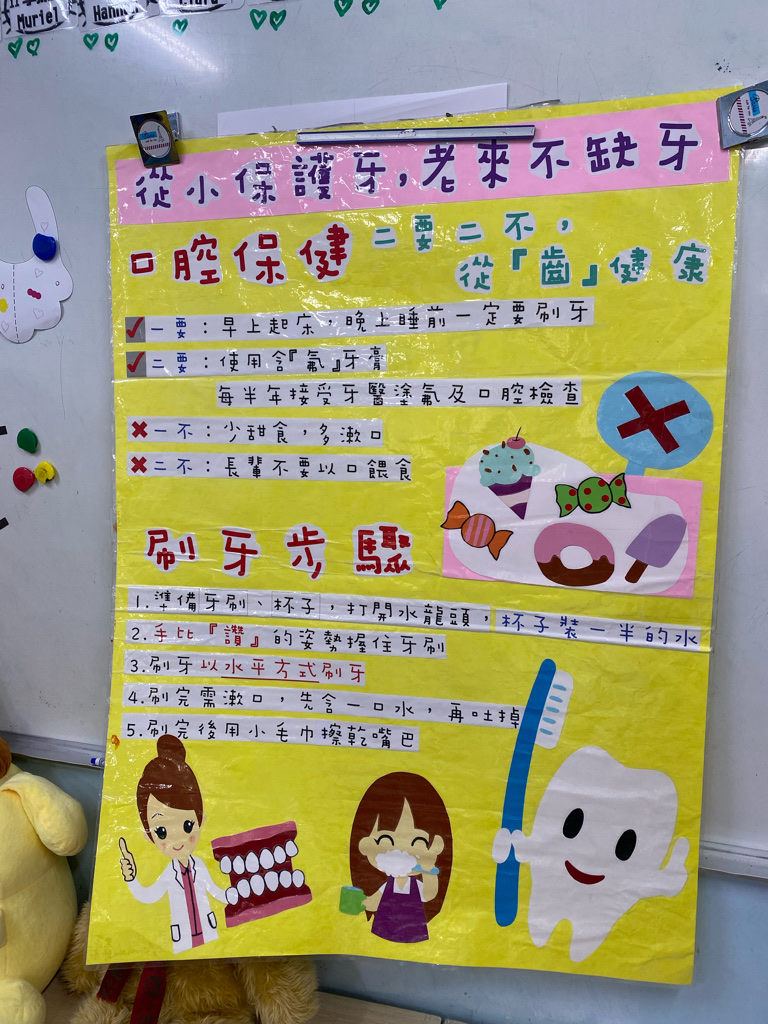 Muriel
從小保護牙,老來不缺牙
口腔保健二要二不,
從『齒』健康
一要：早上起床，晚上睡前一定要刷牙
二要：使用含『氟』牙膏
每半年接受牙醫塗氟及口腔檢查
一不：少甜食，多漱口
二不：長輩不要以口餵食
刷牙步驟
1.準備牙刷、杯子，打開水龍頭，杯子裝一半的水
2.手比『讚』的姿勢握住牙刷
3.刷牙以水平方式刷牙
4.刷完需漱口，先含一口水，再吐掉
5.刷完後用小毛巾擦乾嘴巴